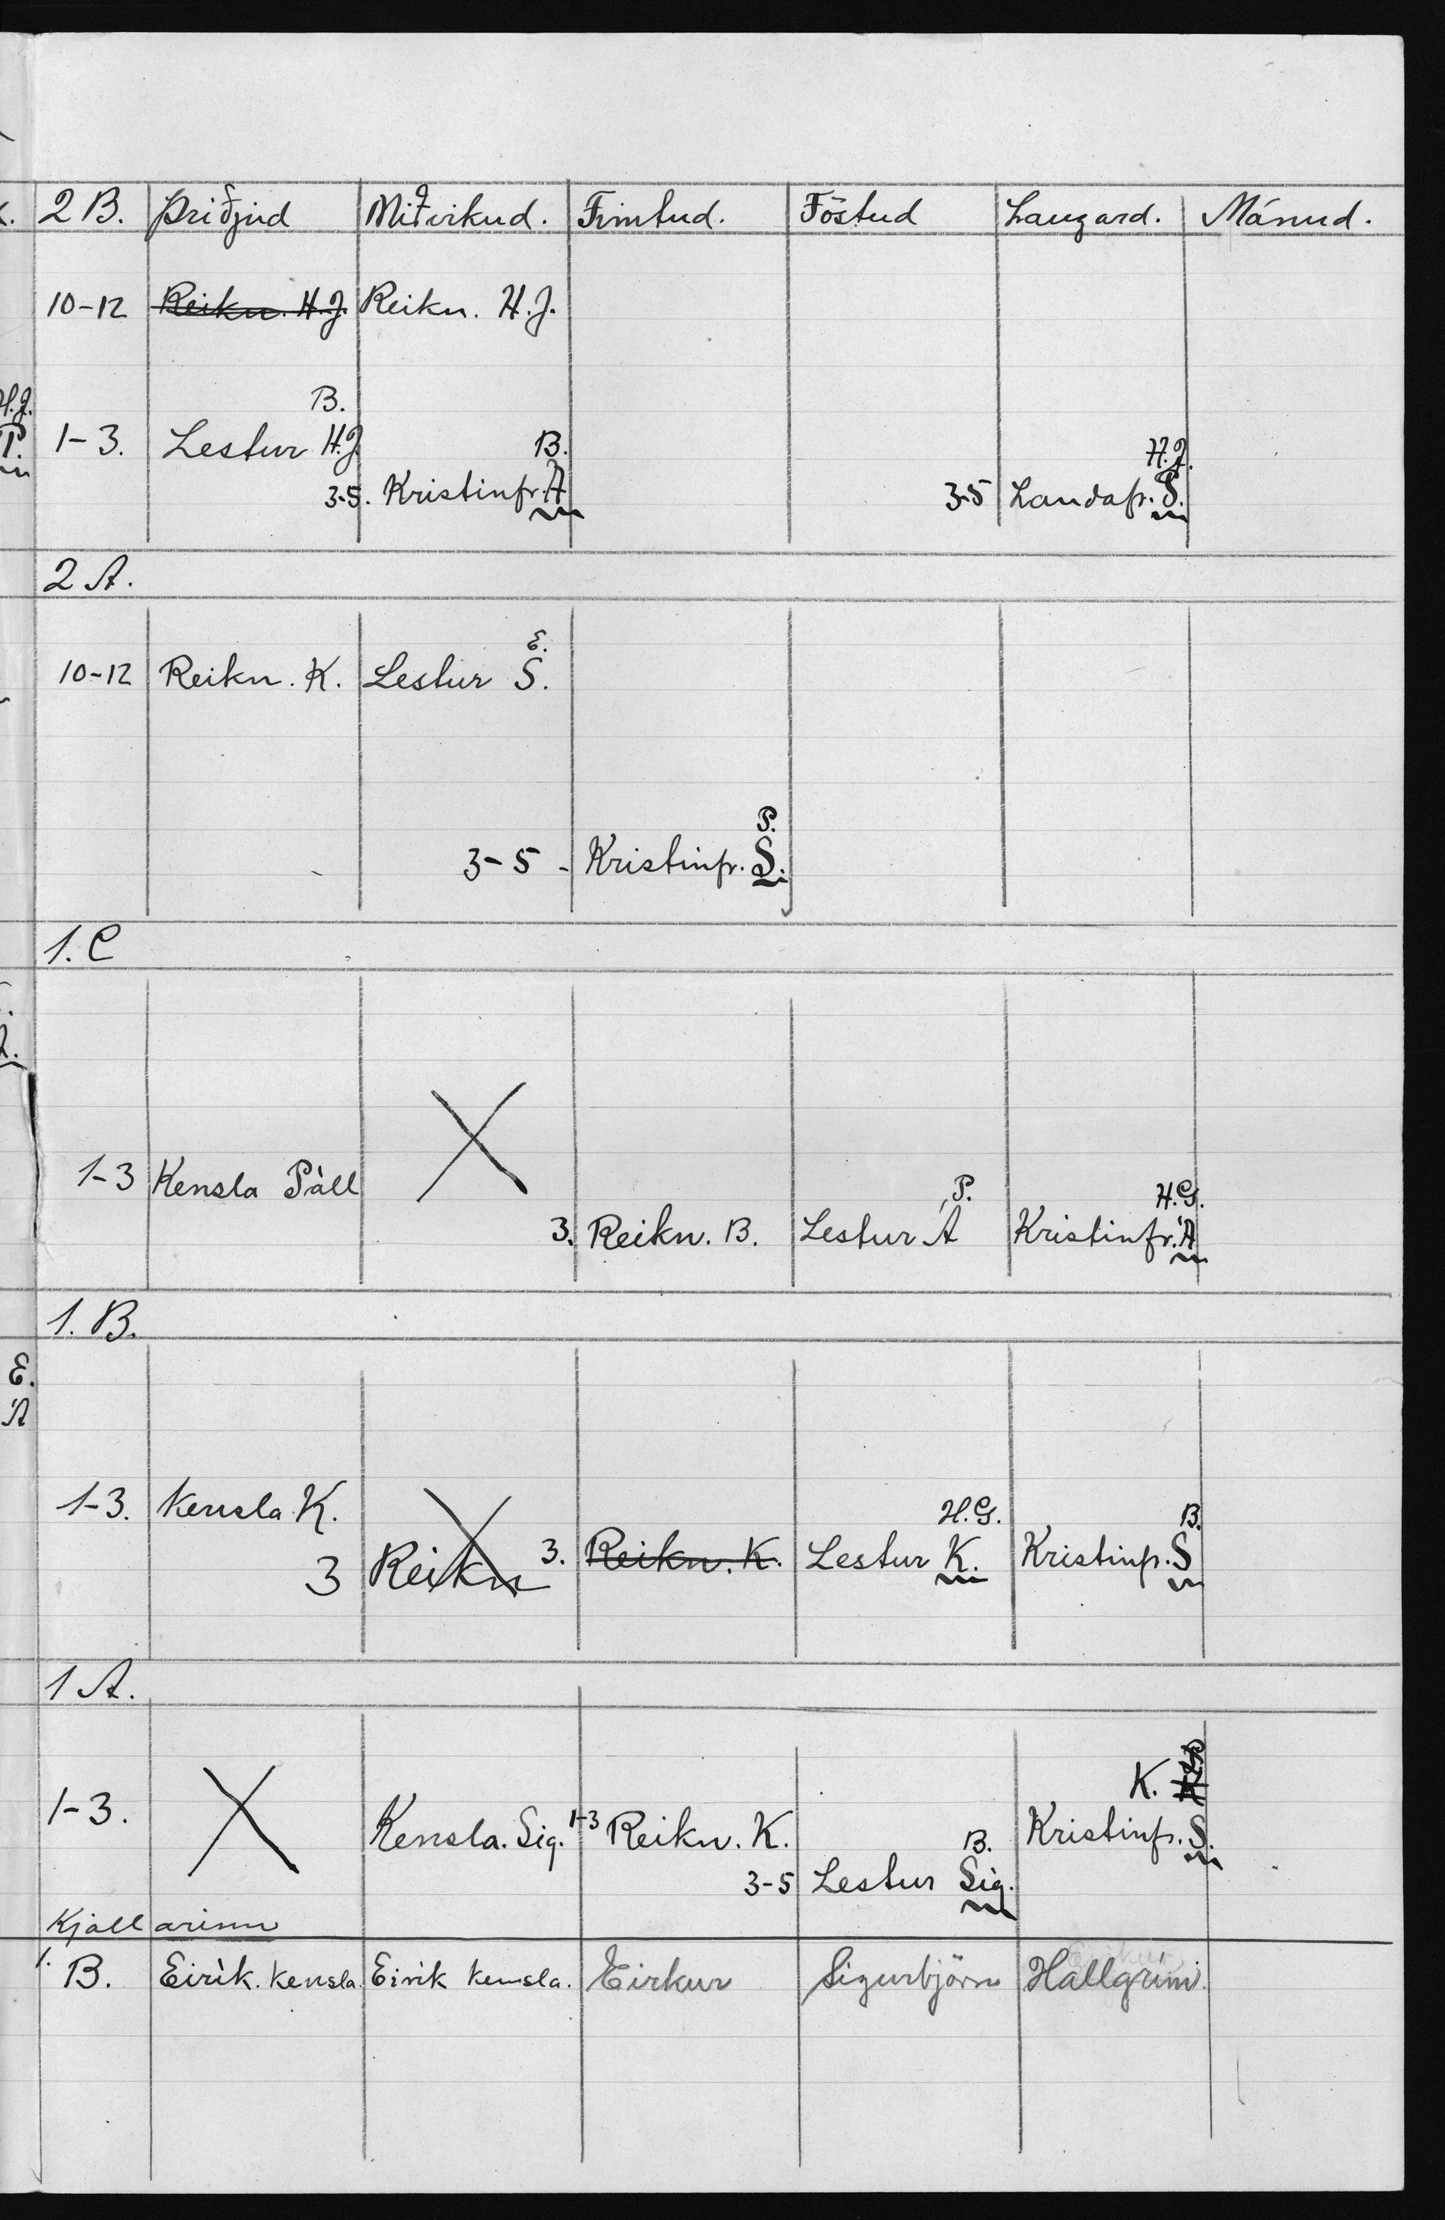 2 B. Þriðjud Miðvikud. Fimtud. Föstud Laugard. Mánud.
10-12 Reikn. H.J. Reikn. H.J.
H.J. B.
P. 1-3. Lestur H.J. B. H.J.
3-5. Kristinfr. Á 3-5 Landafr. S.
2 A.
E.
10-12 Reikn. K. Lestur S.
P.
3-5 - Kristinfr. S.
1. C
1-3 Kensla Páll P. H.G.
3. Reikn. B. Lestur Á Kristinfr. Á
1. B.
E.
Á
1-3. Kensla K. H.G. B.
3 Reikn 3. Reikn. K. Lestur K. Kristinfr. S
1 A.
K.
1-3. Kensla. Sig. 1-3 Reikn. K. B. Kristinfr. S.
3-5 Lestur Sig.
Kjallarinn
1. B. Eirík. kensla Eirík kensla. Eirkur Sigurbjörn Hallgrími